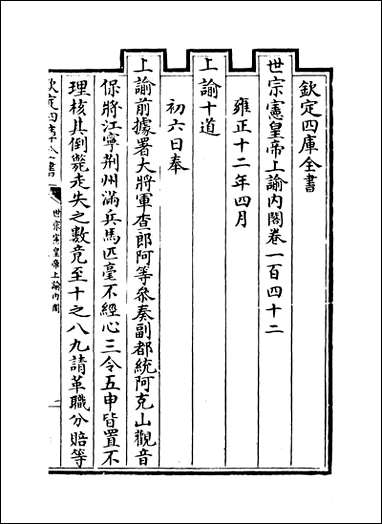 欽定四庫全書
世宗憲皇帝上諭內閣卷一百四十二
雍正十二年四月
上諭十道
初六日奉
上諭前據署大將軍查郎阿等叅奏副都統阿克山觀音
保將江寧荆州滿兵馬匹毫不經心三令五申皆置不
理核其倒斃走失之數竟至十之八九請革職分賠等
欽定四庫全書
世宗憲皇帝上諭內閣